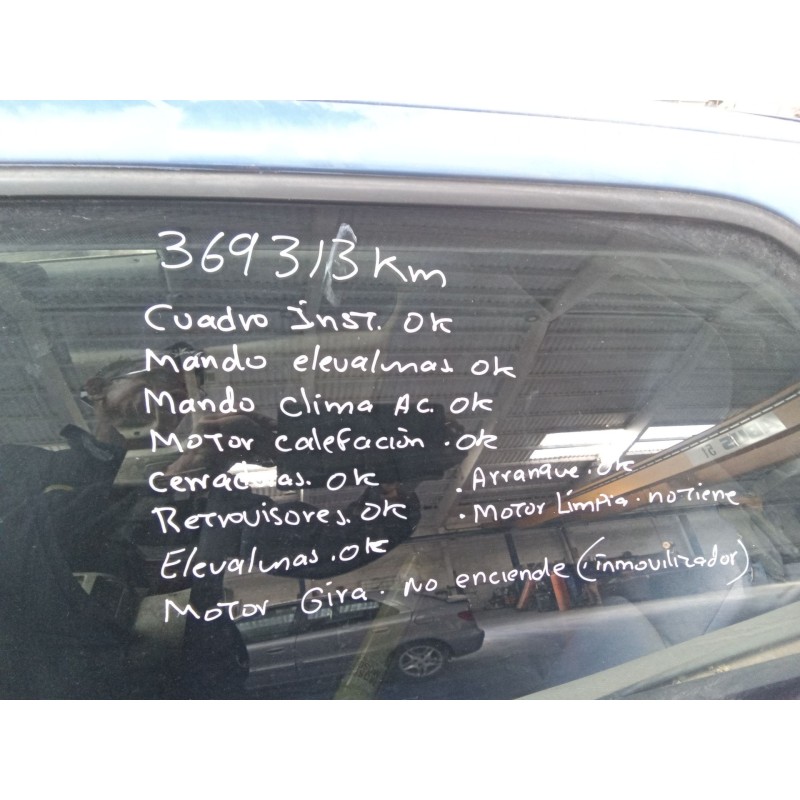 369313 Km
Cuadro Inst. OK
Mando elevalunas OK
Mando Clima AC. OK
Motor calefación . OK
Cerraduras. OK
Retrovisores. OK
Elevalunas . OK
Motor Gira . No enciende (inmovilizador)
. Arranque . OK
. Motor Limpia . no tiene